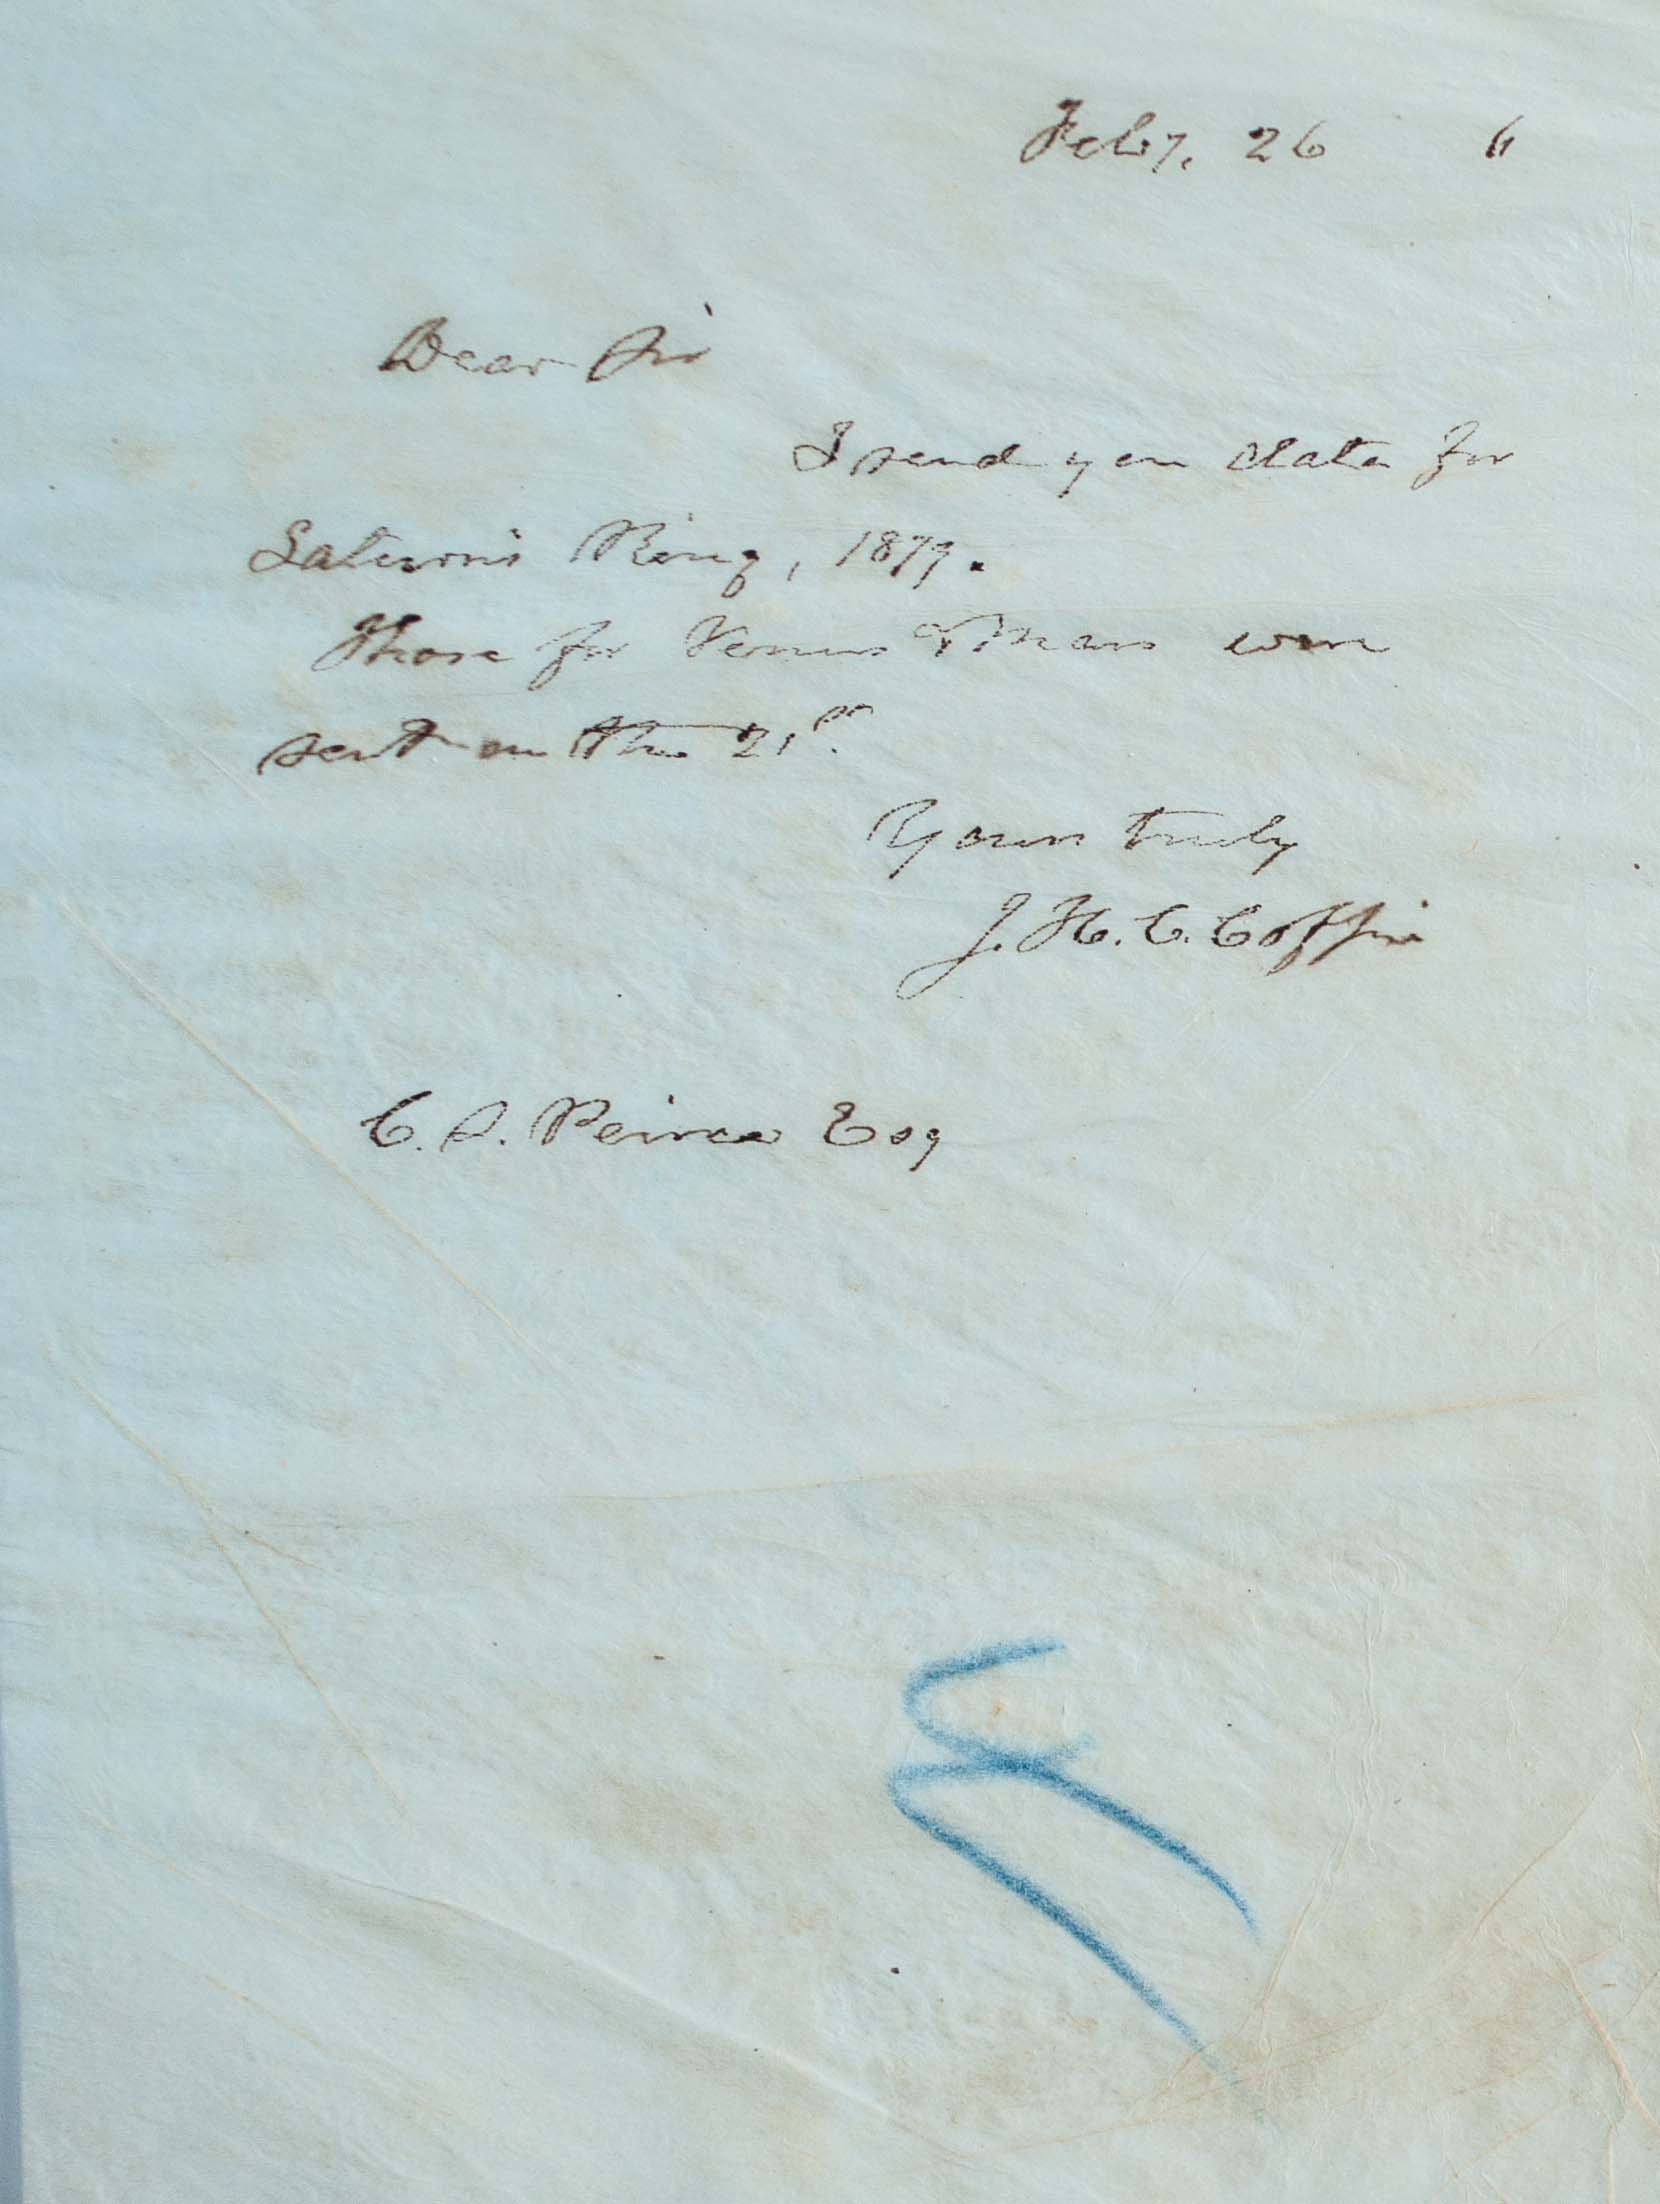 Feby. 26 6
Dear Sir
I send you data for
Saturn's Ring, 1879.
Those for Venus & Mars were
sent on the 21st.
Yours truly
J. H. C. Coffin
C. S. Peirce Esq